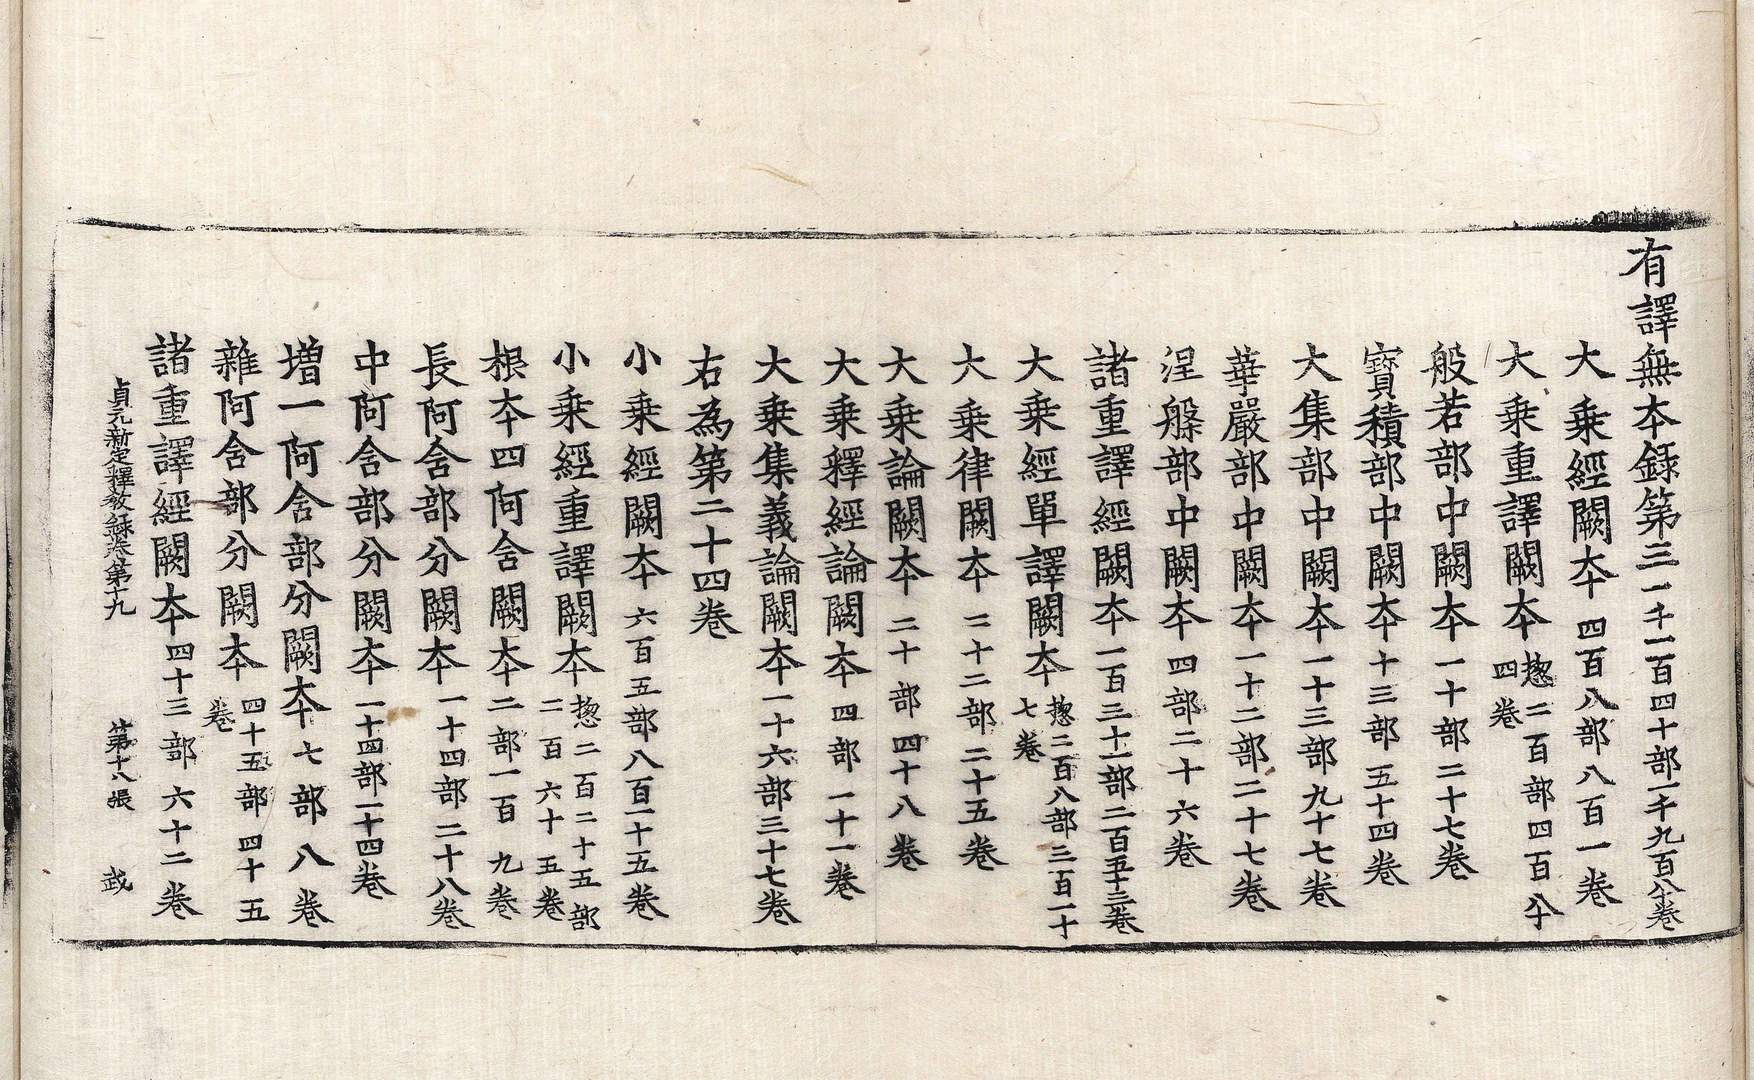 有譯無夲録第三一千一百四十部一千九百八十卷
大乗經闕夲四百八部八百一卷
大乗重譯闕夲揔二百部四百八十四卷
般若部中闕夲一十部二十七卷
寶積部中闕夲十三部五十四卷
大集部中闕夲一十三部九十七卷
華嚴部中闕夲一十二部二十七卷
涅槃部中闕夲四部二十六卷
諸重譯經闕夲一百三十一部二百五十三卷
大乗經單譯闕夲揔二百八部三百一十七卷
大乗律闕夲二十二部二十五卷
大乗論闕夲二十部四十八卷
大乗釋經論闕夲四部一十一卷
大乗集義論闕夲一十六部三十七卷
右為第二十四卷
小乗經闕夲六百五部八百一十五卷
小乗經重譯闕夲揔二百二十五部二百六十五卷
根夲四阿含闕夲二部一百九卷
長阿含部分闕夲一十四部二十八卷
中阿含部分闕夲一十四部一十四卷
増一阿含部分闕夲七部八卷
雜阿含部分闕夲四十五部四十五卷
諸重譯經闕夲四十三部六十二卷
貞元新定釋教録卷第十九 第十八張 武